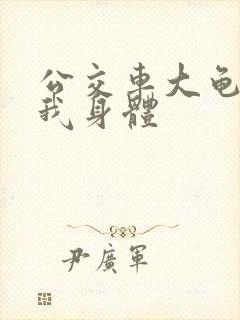 公交車大龟
我身體
尹廣軍